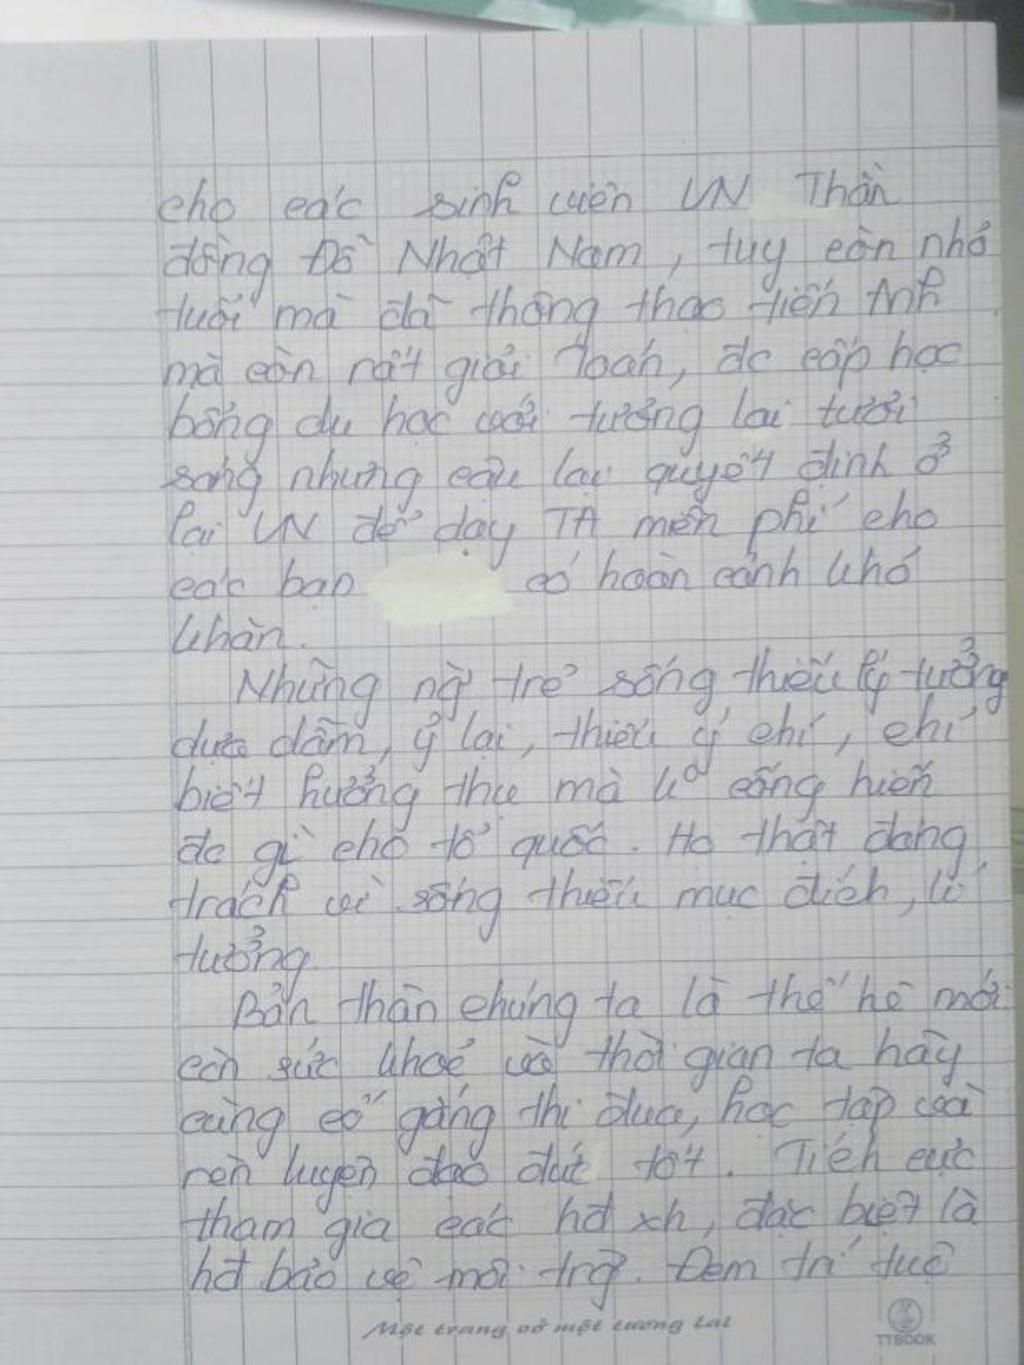 cho các sinh viên VN Thần
đồng Đỗ Nhật Nam, tuy còn nhỏ
tuổi mà đã thông thạo tiến Anh
mà còn rất giỏi Toán, đc cấp học
bổng du học với tương lai tươi
sáng nhưng cậu lại quyết định ở
lại VN để dạy TA miễn phí cho
các bạn có hoàn cảnh khó
khăn.
Những ng` trẻ sống thiếu lý tưởng
dựa dẫm, ỷ lại, thiếu ý chí, chỉ
biết hưởng thụ mà ko cống hiến
đc gì cho tổ quốc. Họ thật đáng
trách vì sống thiếu mục đích, lí
tưởng
Bản thân chúng ta là thế hệ mới
còn sức khoẻ và thời gian ta hãy
cùng cố gắng thi đua, học tập và
rèn luyện đạo đức tốt. Tích cực
tham gia các hđ xh, đặc biệt là
hđ bảo vệ môi trg`. Đem trí tuệ
Một trang vở một tương lai
TTBOOK